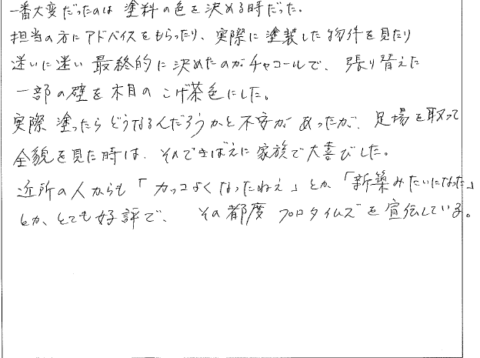 一番大変だったのは 塗料の色を決める時だった。
担当の方にアドバイスをもらったり、実際に塗装した物件を見たり
迷いに迷い 最終的に決めたのがチャコールで、張り替えた
一部の壁を木目の こげ茶色にした。
実際 塗ったらどうなるんだろうかと不安があったが、足場を取って
全貌を見た時は、そのできばえに家族で大喜びした。
近所の人からも「カッコよくなったねえ」とか「新築みたいになった」
とか、とても好評で、その都度 プロタイムズを宣伝している。